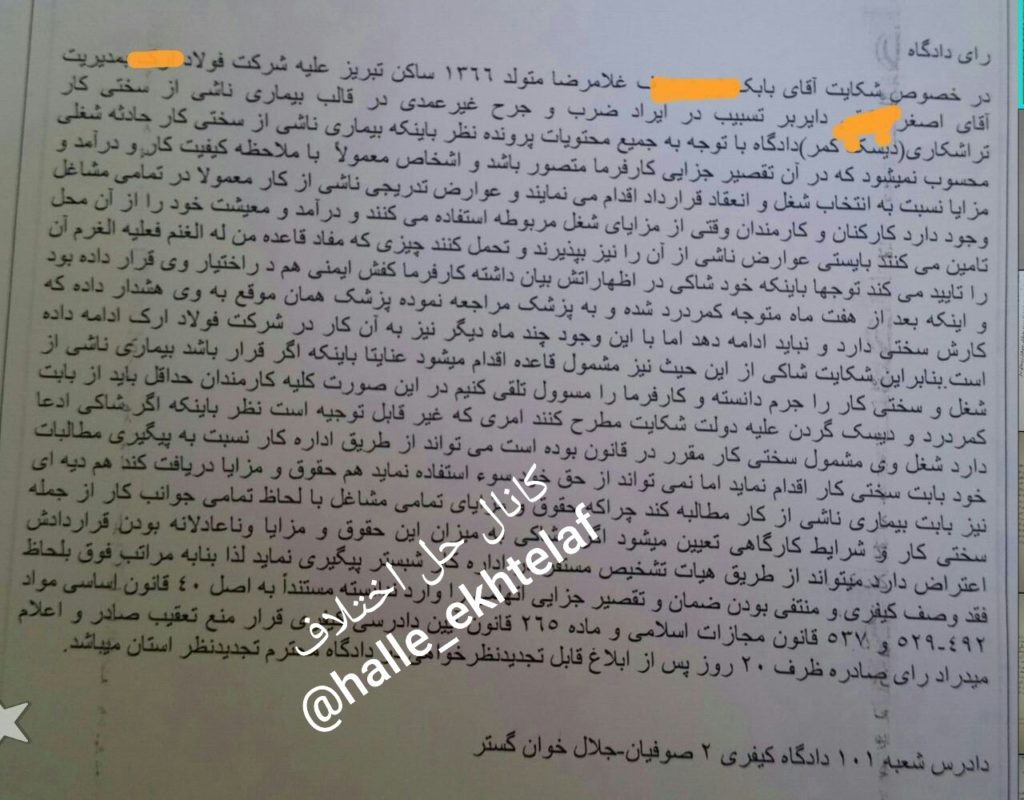 رای دادگاه
در خصوص شکایت آقای بابک غلامرضا متولد ١٣٦٦ ساکن تبریز علیه شرکت فولاد بمدیریت
آقای اصغر دایربر تسبیب در ایراد ضرب و جرح غیرعمدی در قالب بیماری ناشی از سختی کار
تراشکاری(دیسک کمر)دادگاه با توجه به جمیع محتویات پرونده نظر باینکه بیماری ناشی از سختی کار حادثه شغلی
محسوب نمیشود که در آن تقصیر جزایی کارفرما متصور باشد و اشخاص معمولاً با ملاحظه کیفیت کار و درآمد و
مزایا نسبت به انتخاب شغل و انعقاد قرارداد اقدام می نمایند و عوارض تدریجی ناشی از کار معمولا در تمامی مشاغل
وجود دارد کارکنان و کارمندان وقتی از مزایای شغل مربوطه استفاده می کنند و درآمد و معیشت خود را از آن محل
تامین می کنند بایستی عوارض ناشی از آن را نیز بپذیرند و تحمل کنند چیزی که مفاد قاعده من له الغنم فعلیه الغرم آن
را تایید می کند توجها باینکه خود شاکی در اظهاراتش بیان داشته کارفرما کفش ایمنی هم د راختیار وی قرار داده بود
و اینکه بعد از هفت ماه متوجه کمردرد شده و به پزشک مراجعه نموده پزشک همان موقع به وی هشدار داده که
کارش سختی دارد و نباید ادامه دهد اما با این وجود چند ماه دیگر نیز به آن کار در شرکت فولاد ارک ادامه داده
است.بنابراین شکایت شاکی از این حیث نیز مشمول قاعده اقدام میشود عنایتا باینکه اگر قرار باشد بیماری ناشی از
شغل و سختی کار را جرم دانسته و کارفرما را مسوول تلقی کنیم در این صورت کلیه کارمندان حداقل باید از بابت
کمردرد و دیسک گردن علیه دولت شکایت مطرح کنند امری که غیر قابل توجیه است نظر باینکه اگر شاکی ادعا
دارد شغل وی مشمول سختی کار مقرر در قانون بوده است می تواند از طریق اداره کار نسبت به پیگیری مطالبات
خود بابت سختی کار اقدام نماید اما نمی تواند از حق خود سوء استفاده نماید هم حقوق و مزایا دریافت کند هم دیه ای
نیز بابت بیماری ناشی از کار مطالبه کند چراکه حقوق و مزایای تمامی مشاغل با لحاظ تمامی جوانب کار از جمله
سختی کار و شرایط کارگاهی تعیین میشود اگر شاکی به میزان این حقوق و مزایا وناعادلانه بودن قراردادش
اعتراض دارد میتواند از طریق هیات تشخیص مستقر در اداره کار شبستر پیگیری نماید لذا بنابه مراتب فوق بلحاظ
فقد وصف کیفری و منتفی بودن ضمان و تقصیر جزایی وارد مستنداً به اصل ٤٠ قانون اساسی مواد
٤٩٢-٥٢٩ و ٥٣٧ قانون مجازات اسلامی و ماده ٢٦٥ قانون آیین دادرسی کیفری قرار منع تعقیب صادر و اعلام
میدارد رای صادره ظرف ٢٠ روز پس از ابلاغ قابل تجدیدنظرخواهی در دادگاه محترم تجدیدنظر استان میباشد.
دادرس شعبه ١٠١ دادگاه کیفری ٢ صوفیان-جلال خوان گستر
کانال حل اختلاف
@halle_ekhtelaf